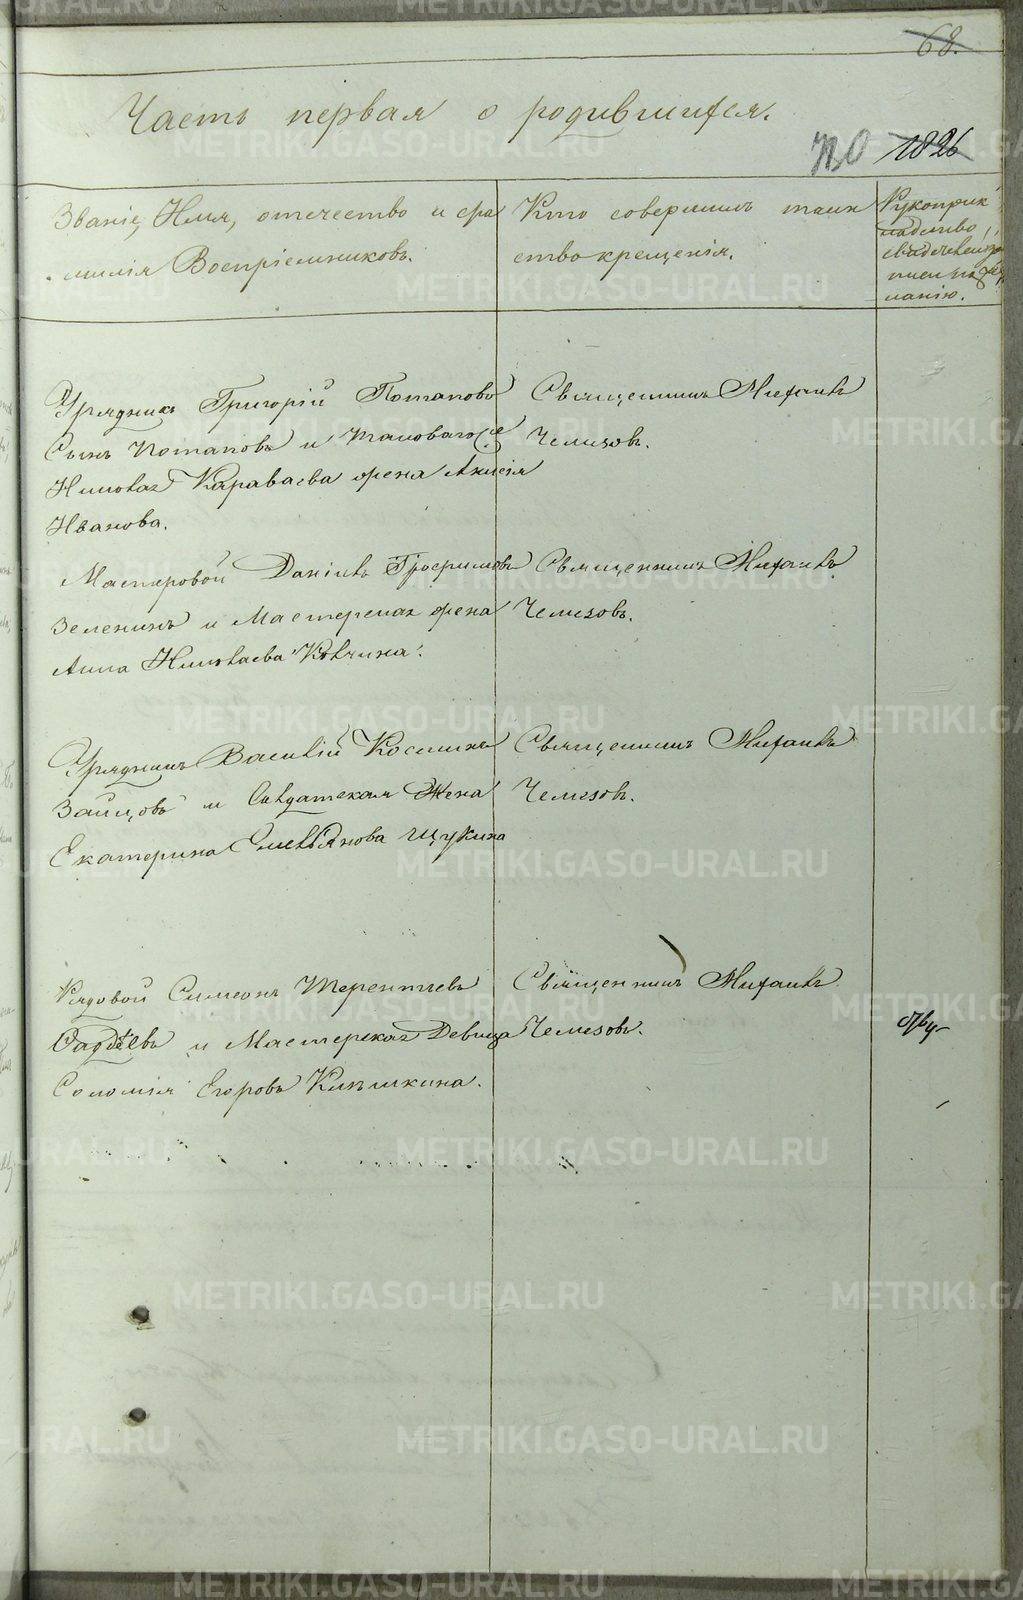 68.
Часть первая о родившихся.
1826
Званіе, Имя, отечество и фа
милія Воспріемниковъ.
Кто совершилъ таин
ство крещенія.
Рукоприк
ладство
свидѣтелей за
писи по же
ланію.
Урядникъ Григорій Потаповъ
Сынъ Потаповъ и таковаго же
Николая Караваева жена Анисія
Иванова.
Священникъ Михаилъ
Чемезовъ.
Мастеровой Даніилъ Трофимовъ
Зеленинъ и Мастерская жена
Анна Николаева Ковчина.
Священникъ Михаилъ
Чемезовъ.
Урядникъ Василій Косминъ
Зайцовъ и Солдатская Жена
Екатерина Емельянова Щукина
Священникъ Михаилъ
Чемезовъ.
Рядовой Симеонъ Терентьевъ
и Мастерская Девица
Соломія Егорова Кикшкина.
Священникъ Михаилъ
Чемезовъ.
METRIKI.GASO-URAL.RU